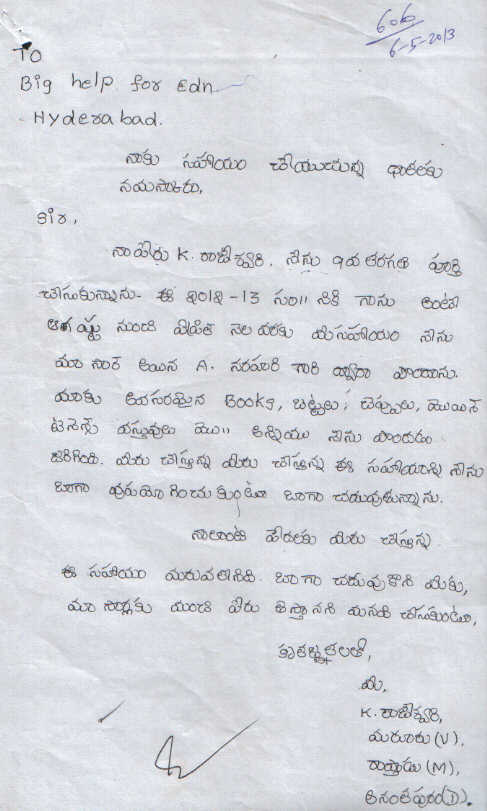 606
6-5-2013
TO
Big help for Edn
Hyderabad.
నాకు సహాయం చేయుచున్న దాతలకు
నమస్కారం,
Sir,
నా పేరు K. రాజేశ్వరి. నేను 9వ తరగతి పూర్తి
చేసుకున్నాను. ఈ 2012-13 సం॥ నికి గాను అంటే
ఆగష్టు నుండి ఏప్రిల్ నెల వరకు మీ సహాయం నేను
మా సార్ అయిన A. నరహరి గారి ద్వారా పొందాను.
మాకు అవసరమైన Books, బట్టలు, చెప్పులు,
వస్తువులు మొ॥ అన్నియు నేను పొందడం
జరిగింది. మీరు చేస్తున్న మీరు చేస్తున్న ఈ సహాయాన్ని నేను
బాగా వుపయోగించుకుంటూ బాగా చదువుకున్నాను.
నాలాంటి పేదలకు మీరు చేస్తున్న
ఈ సహాయం మరువలేనిది. బాగా చదువుకొని మీకు,
మా సార్లకు మంచి పేరు తెస్తానని మనవి చేసుకుంటూ,
కృతజ్ఞతలతో,
మీ,
K. రాజేశ్వరి,
మరూరు (V),
రాప్తాడు (M),
అనంతపురం (D).